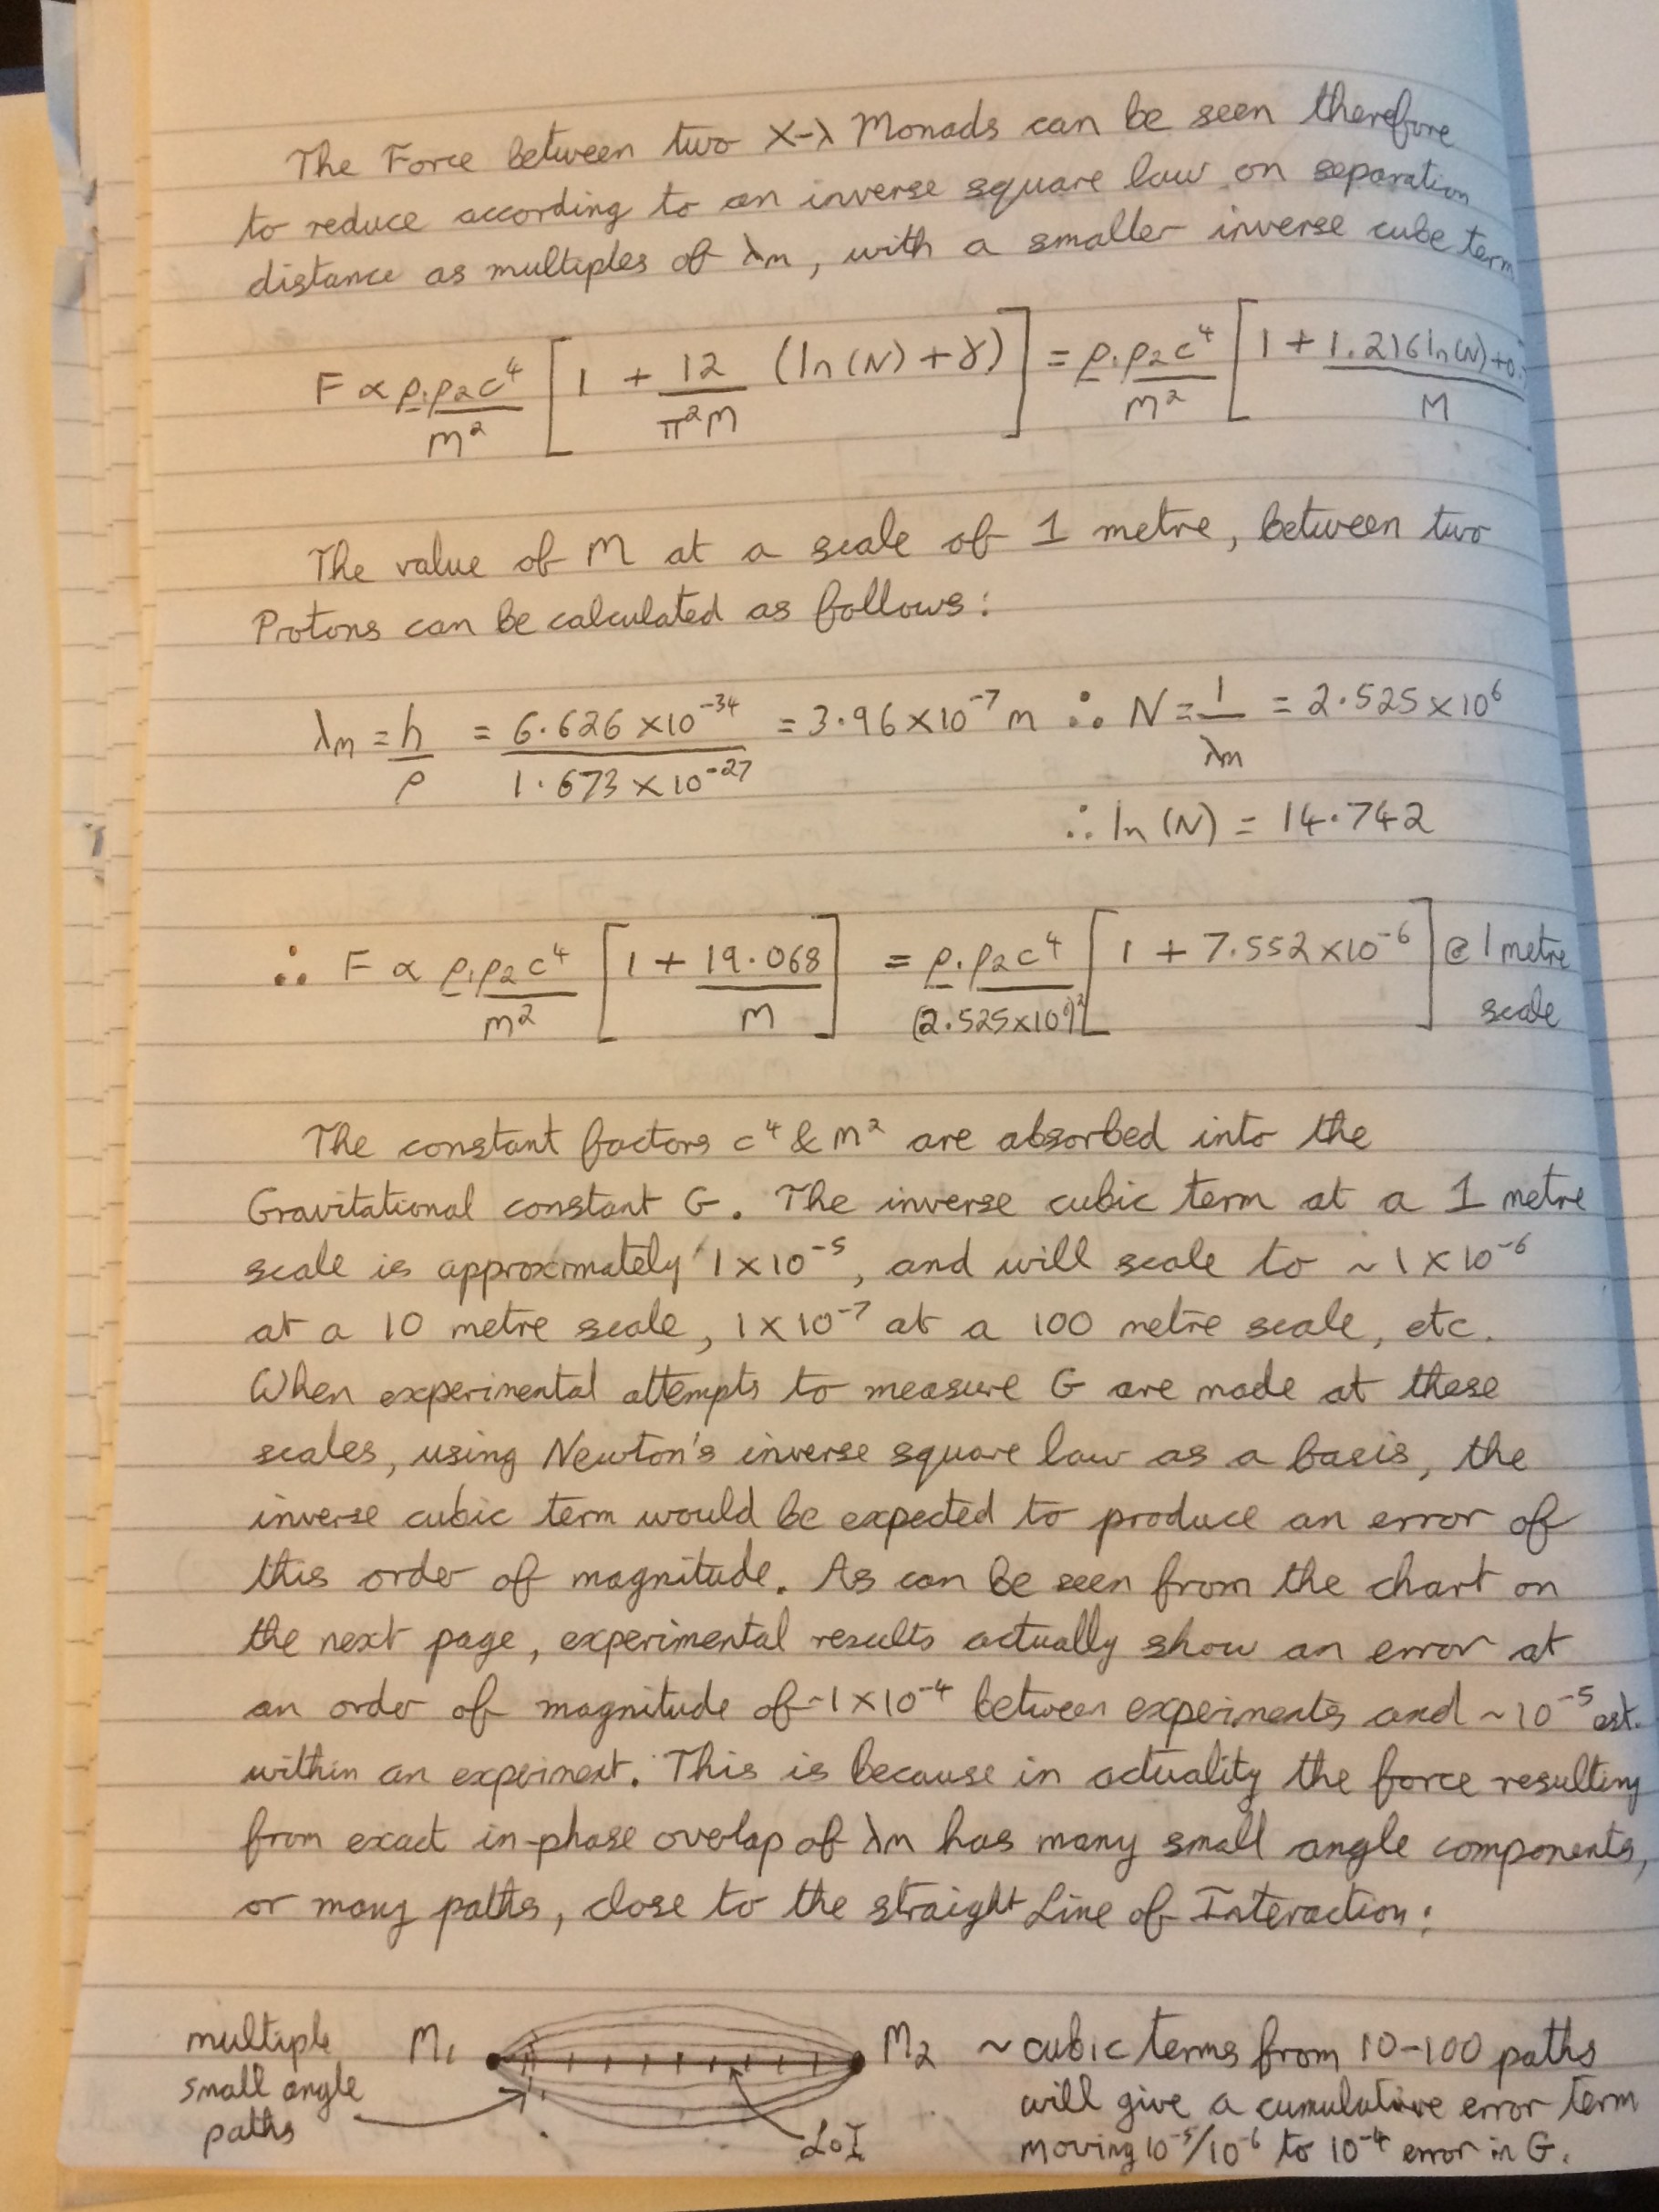 The Force between two X-λ Monads can be seen therefore
to reduce according to an inverse square law on separation
distance as multiples of λm, with a smaller inverse cube term
F ∝ ρ₁ρ₂c⁴/m² [1 + 12/π²M (ln(N) + γ)] = ρ₁ρ₂c⁴/m² [1 + 1.216ln(N)+0./M
The value of M at a scale of 1 metre, between two
Protons can be calculated as follows:
λm = h/ρ = 6.626 × 10⁻³⁴/1.673 × 10⁻²⁷ = 3.96 × 10⁻⁷ m ∴ N = 1/λm = 2.525 × 10⁶
∴ ln (N) = 14.742
∴ F ∝ ρ₁ρ₂c⁴/m² [1 + 19.068/M] = ρ₁ρ₂c⁴/(2.525×10⁶)² [1 + 7.552 × 10⁻⁶] @ 1 metre
scale
The constant factors c⁴ & m² are absorbed into the
Gravitational constant G. The inverse cubic term at a 1 metre
scale is approximately 1 × 10⁻⁵, and will scale to ~ 1 × 10⁻⁶
at a 10 metre scale, 1 × 10⁻⁷ at a 100 metre scale, etc.
When experimental attempts to measure G are made at these
scales, using Newton's inverse square law as a basis, the
inverse cubic term would be expected to produce an error of
this order of magnitude. As can be seen from the chart on
the next page, experimental results actually show an error at
an order of magnitude of ~1 × 10⁻⁴ between experiments and ~10⁻⁵ est.
within an experiment. This is because in actuality the force resulting
from exact in-phase overlap of λm has many small angle components,
or many paths, close to the straight Line of Interaction:
multiple
small angle
paths
M₁
M₂
LoI
~ cubic terms from 10-100 paths
will give a cumulative error term
moving 10⁻⁵/10⁻⁶ to 10⁻⁴ error in G.